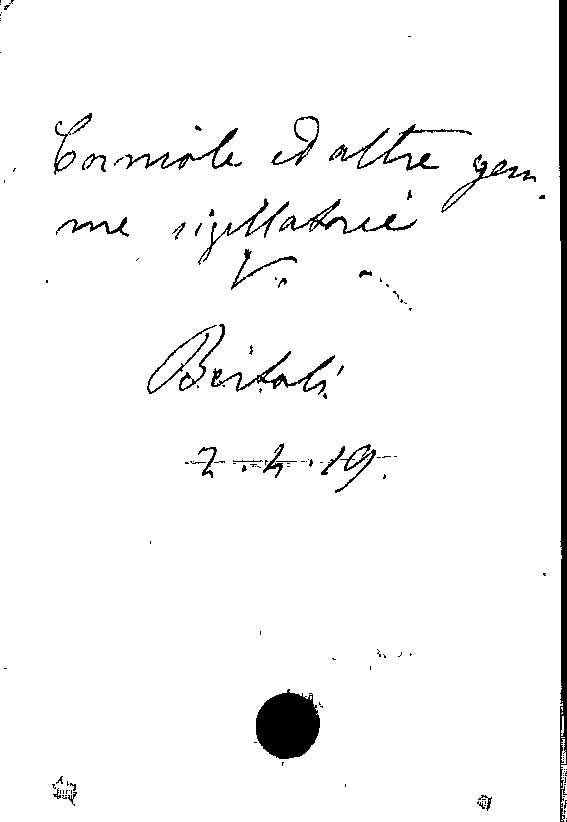 Corniole ed altre gem
me sigillatorie
V.
Bertoli
2.4.19.